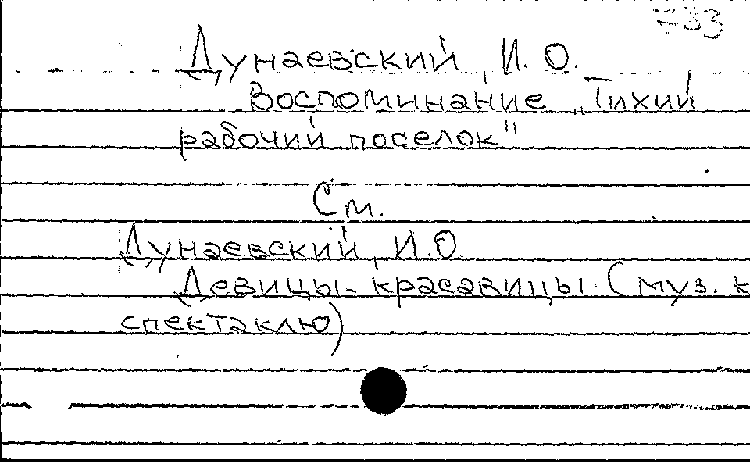 Дунаевский, И. О.
Воспоминание „Тихий
рабочий поселок"
См.
Дунаевский, И. О
Девицы-красавицы. (муз. к
спектаклю)